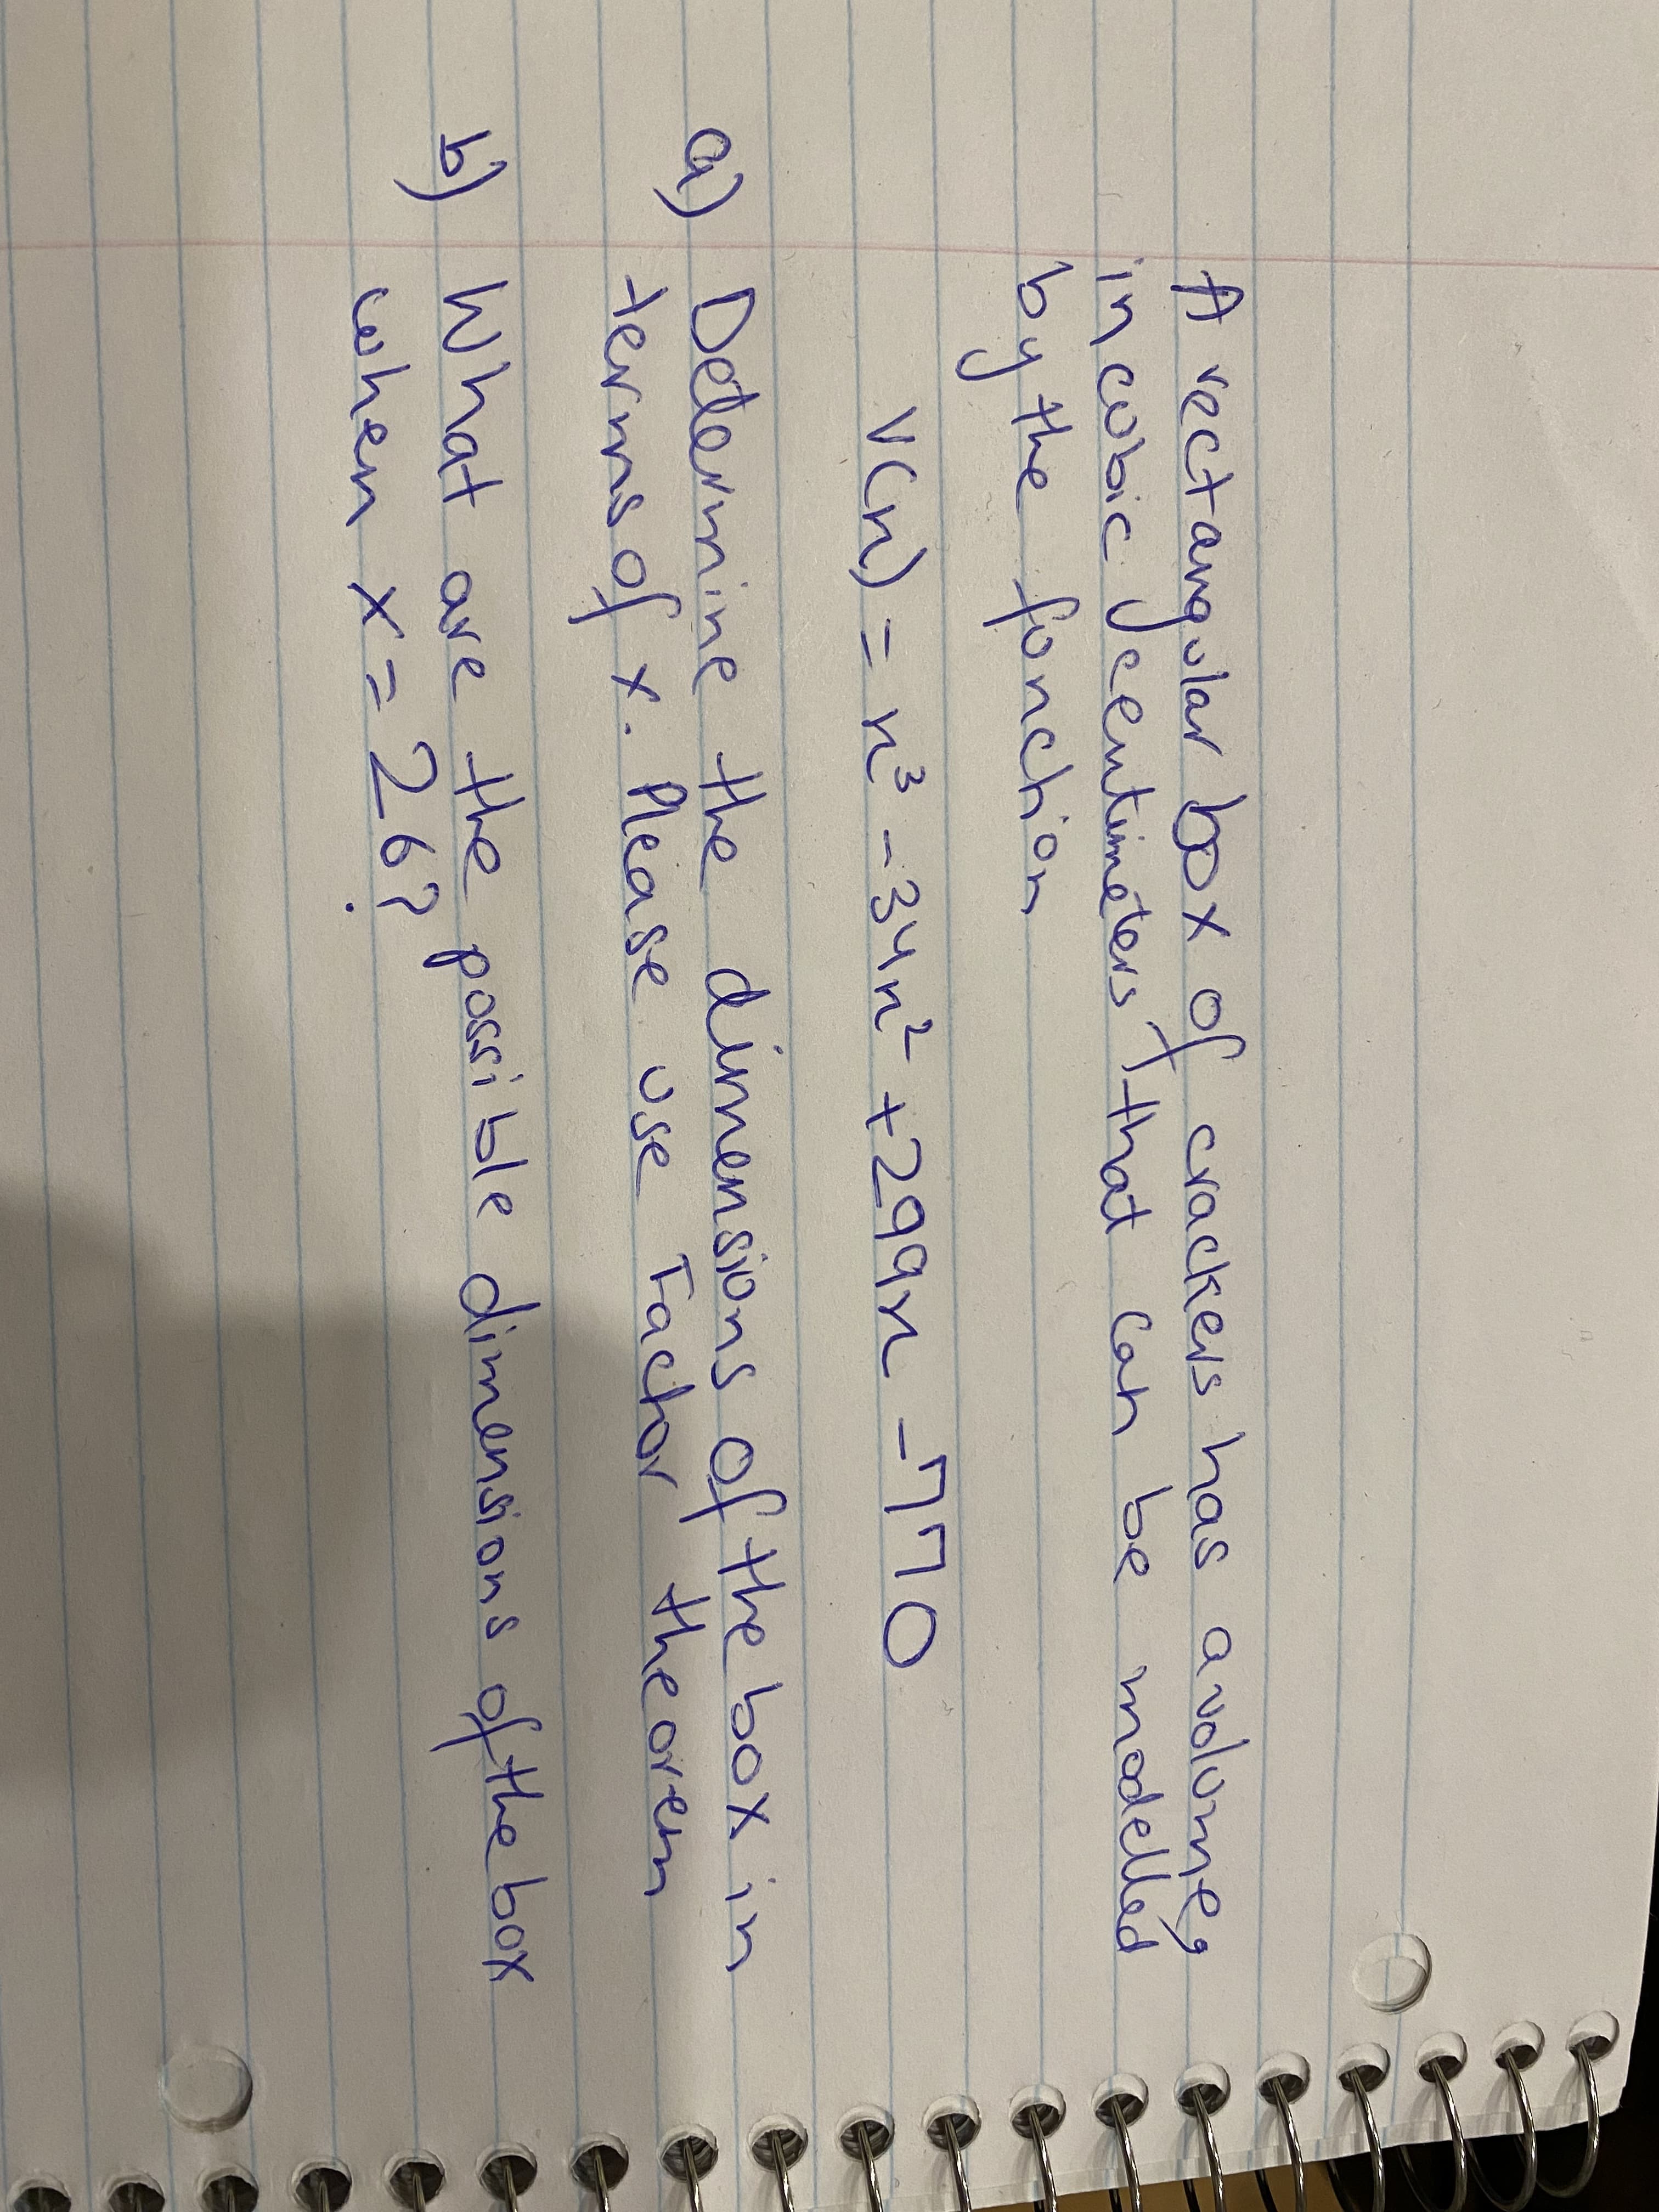 A rectangular box of crackers has a volume,
in cubic centimeters, that can be modelled
by the function
V(x) = x³ - 34x² + 299x - 770
a) Determine the dimensions of the box in
terms of x. Please use Factor theorem
b) What are the possible dimensions of the box
when x = 26?